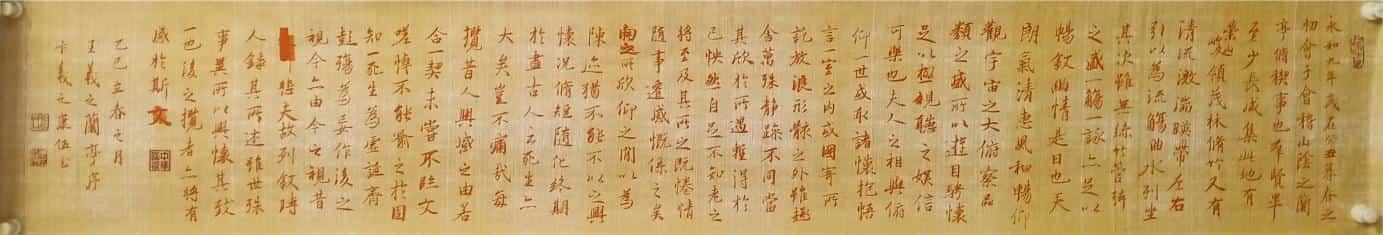 永和九年歲在癸丑暮春之
初會于會稽山陰之蘭
亭脩稧事也羣賢畢
至少長咸集此地有
崇山
峻領茂林脩竹又有
清流激湍暎帶左右
引以為流觴曲水列坐
其次雖無絲竹管絃
之盛一觴一詠亦足以
暢敘幽情是日也天
朗氣清惠風和暢仰
觀宇宙之大俯察品
類之盛所以遊目騁懷
足以極視聽之娛信
可樂也夫人之相與俯
仰一世或取諸懷抱悟
言一室之內或因寄所
託放浪形骸之外雖趣
舍萬殊靜躁不同當
其欣於所遇暫得於
己怏然自足不知老之
將至及其所之既惓情
隨事遷感慨係之矣
向之所欣仰之閒以為
陳迹猶不能不以之興
懷況脩短隨化終期
於盡古人云死生亦
大矣豈不痛哉每
攬昔人興感之由若
合一契未嘗不臨文
嗟悼不能喻之於固
知一死生為虛誕齊
彭殤為妄作後之
視今亦由今之視昔
悲夫故列敘時
人錄其所述雖世殊
事異所以興懷其致
一也後之攬者亦將有
感於斯文
乙巳立春之月
王羲之蘭亭序
卞義之